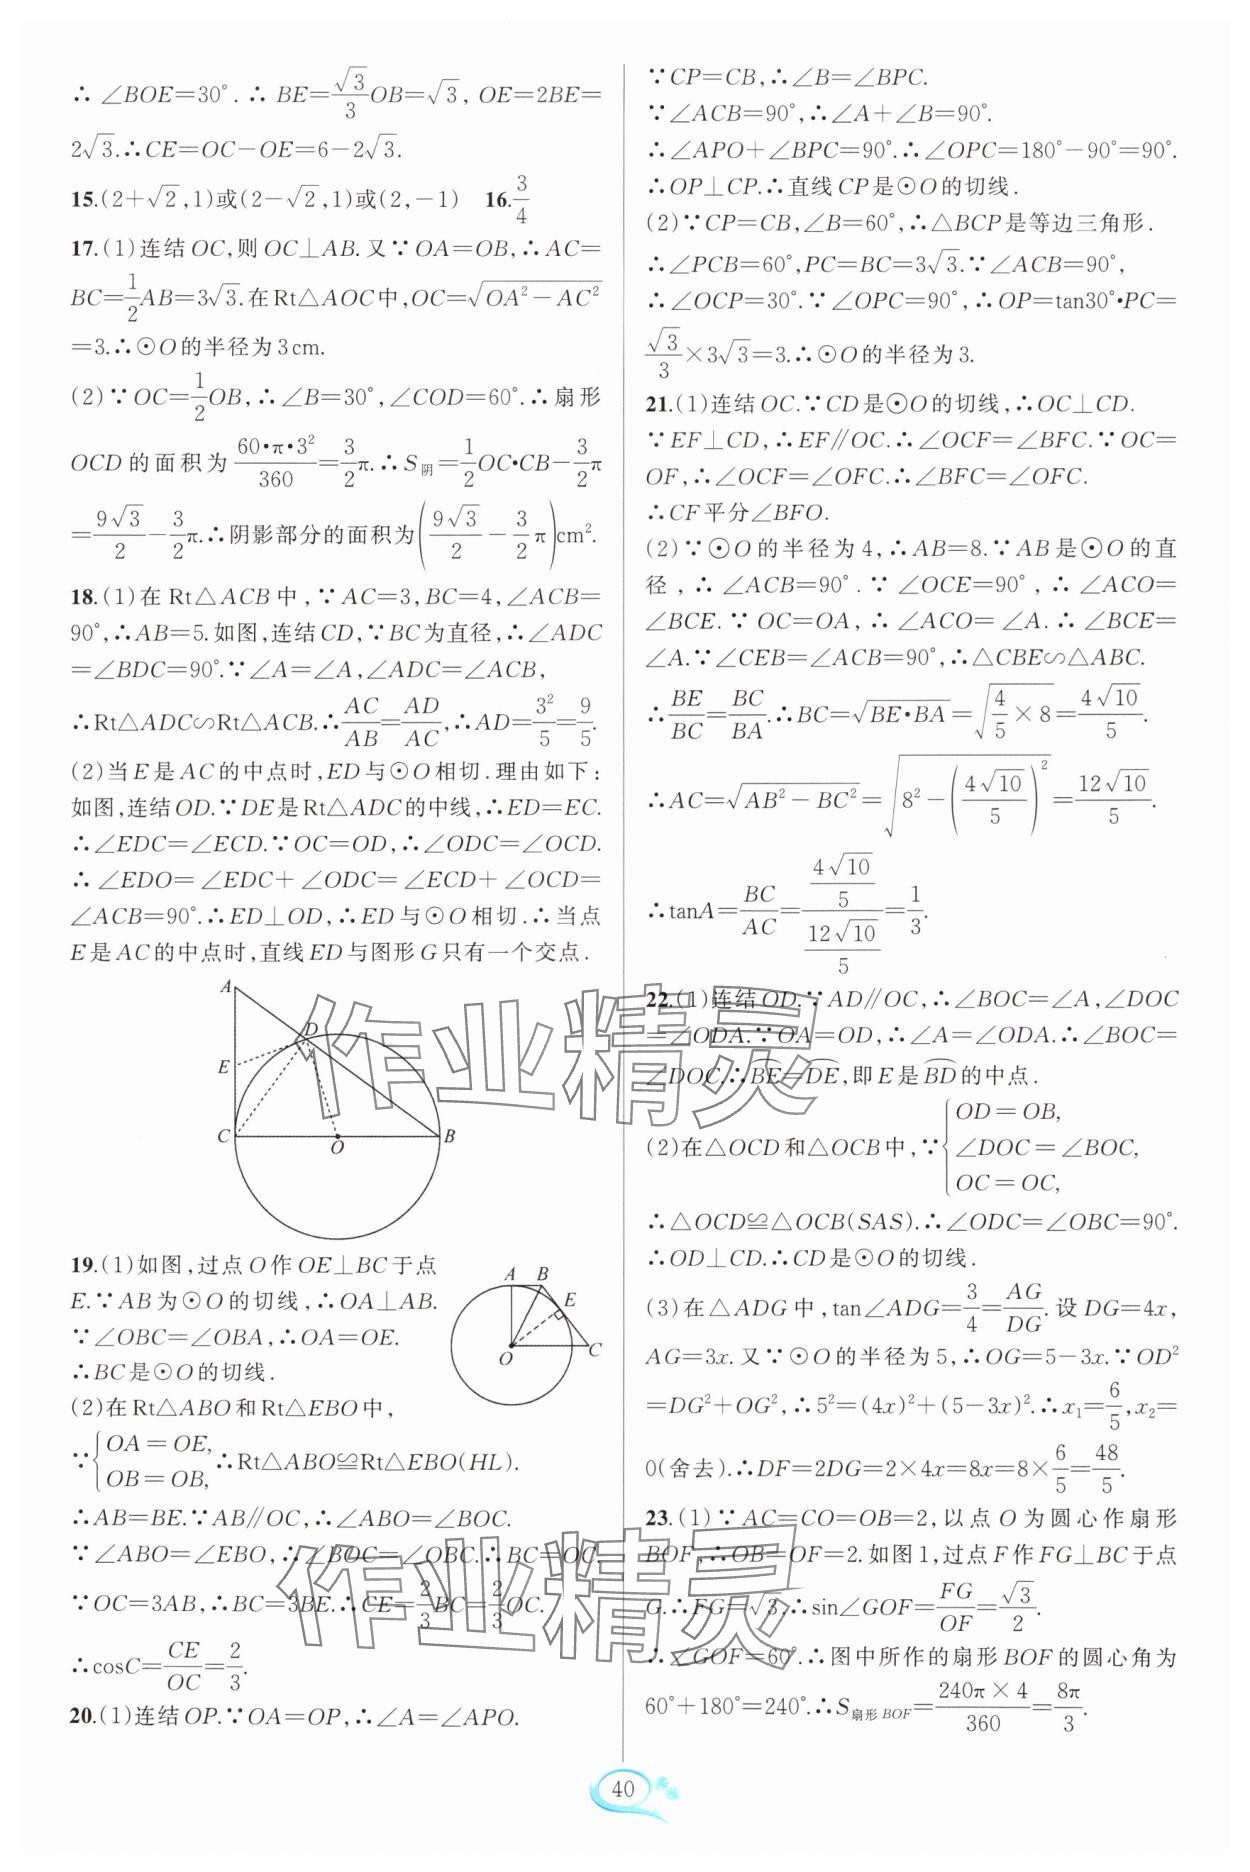 ∴ ∠BOE=30°. ∴ BE=√3/3OB=√3, OE=2BE=
2√3.∴CE=OC-OE=6-2√3.
15.(2+√2,1)或(2-√2,1)或(2,-1)  16.3/4
17.(1)连结OC,则OC⊥AB.又∵OA=OB,∴AC=
BC=1/2AB=3√3.在Rt△AOC中,OC=√(OA²-AC²)
=3.∴⊙O的半径为3cm.
(2)∵OC=1/2OB,∴∠B=30°,∠COD=60°.∴扇形
OCD的面积为(60•π•3²)/360=3/2π.∴S阴=1/2OC•CB-3/2π
=9√3/2-3/2π.∴阴影部分的面积为(9√3/2-3/2π)cm².
18.(1)在Rt△ACB中,∵AC=3,BC=4,∠ACB=
90°,∴AB=5.如图,连结CD,∵BC为直径,∴∠ADC
=∠BDC=90°.∵∠A=∠A,∠ADC=∠ACB,
∴Rt△ADC∽Rt△ACB.∴AC/AB=AD/AC,∴AD=3²/5=9/5.
(2)当E是AC的中点时,ED与⊙O相切.理由如下:
如图,连结OD.∵DE是Rt△ADC的中线,∴ED=EC.
∴∠EDC=∠ECD.∵OC=OD,∴∠ODC=∠OCD.
∴∠EDO=∠EDC+∠ODC=∠ECD+∠OCD=
∠ACB=90°.∴ED⊥OD,∴ED与⊙O相切.∴当点
E是AC的中点时,直线ED与图形G只有一个交点.
A
D
E
C
O
B
19.(1)如图,过点O作OE⊥BC于点
E.∵AB为⊙O的切线,∴OA⊥AB.
∵∠OBC=∠OBA,∴OA=OE.
∴BC是⊙O的切线.
A B
E
O
C
(2)在Rt△ABO和Rt△EBO中,
∵{OA=OE, OB=OB, ∴Rt△ABO≌Rt△EBO(HL).
∴AB=BE.∵AB∥OC,∴∠ABO=∠BOC.
∵∠ABO=∠EBO,∴∠BOC=∠OBC.∴BC=OC.
∵OC=3AB,∴BC=3BE.∴CE=2/3BC=2/3OC.
∴cosC=CE/OC=2/3.
20.(1)连结OP.∵OA=OP,∴∠A=∠APO.
∵CP=CB,∴∠B=∠BPC.
∵∠ACB=90°,∴∠A+∠B=90°.
∴∠APO+∠BPC=90°.∴∠OPC=180°-90°=90°.
∴OP⊥CP.∴直线CP是⊙O的切线.
(2)∵CP=CB,∠B=60°,∴△BCP是等边三角形.
∴∠PCB=60°,PC=BC=3√3.∵∠ACB=90°,
∴∠OCP=30°.∵∠OPC=90°,∴OP=tan30°•PC=
√3/3×3√3=3.∴⊙O的半径为3.
21.(1)连结OC.∵CD是⊙O的切线,∴OC⊥CD.
∵EF⊥CD,∴EF∥OC.∴∠OCF=∠BFC.∵OC=
OF,∴∠OCF=∠OFC.∴∠BFC=∠OFC.
∴CF平分∠BFO.
(2)∵⊙O的半径为4,∴AB=8.∵AB是⊙O的直
径,∴∠ACB=90°.∵∠OCE=90°,∴∠ACO=
∠BCE.∵OC=OA,∴∠ACO=∠A.∴∠BCE=
∠A.∵∠CEB=∠ACB=90°,∴△CBE∽△ABC.
∴BE/BC=BC/BA.∴BC=√(BE•BA)=√(4/5×8)=4√10/5.
∴AC=√(AB²-BC²)=√(8²-(4√10/5)²)=12√10/5.
∴tanA=BC/AC=(4√10/5)/(12√10/5)=1/3.
22.(1)连结OD.∵AD∥OC,∴∠BOC=∠A,∠DOC
=∠ODA.∵OA=OD,∴∠A=∠ODA.∴∠BOC=
∠DOC.∴⌒BE=⌒DE,即E是⌒BD的中点.
(2)在△OCD和△OCB中,∵{OD=OB, ∠DOC=∠BOC, OC=OC,
∴△OCD≌△OCB(SAS).∴∠ODC=∠OBC=90°.
∴OD⊥CD.∴CD是⊙O的切线.
(3)在△ADG中,tan∠ADG=3/4=AG/DG.设DG=4x,
AG=3x.又∵⊙O的半径为5,∴OG=5-3x.∵OD²
=DG²+OG²,∴5²=(4x)²+(5-3x)².∴x₁=6/5,x₂=
0(舍去).∴DF=2DG=2×4x=8x=8×6/5=48/5.
23.(1)∵AC=CO=OB=2,以点O为圆心作扇形
BOF,∴OB=OF=2.如图1,过点F作FG⊥BC于点
G.∴FG=√3,∴sin∠GOF=FG/OF=√3/2.
∴∠GOF=60°.∴图中所作的扇形BOF的圆心角为
60°+180°=240°.∴S扇形BOF=(240π×4)/360=8π/3.
作业精灵
作业精灵
40